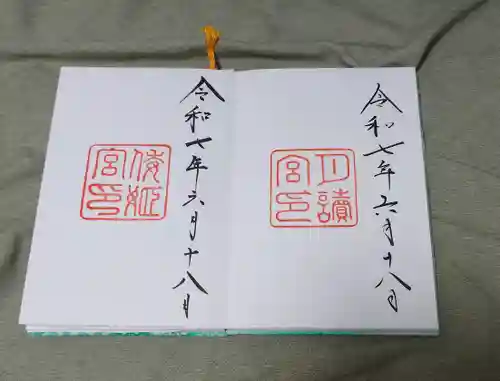 令和七年六月十八日
月讀宮印
令和七年六月十八月
倭姫宮印